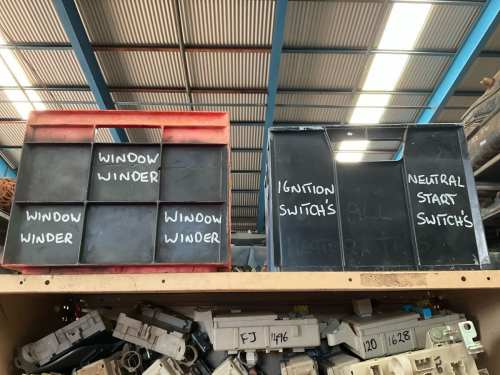 WINDOW
WINDER
WINDOW
WINDER
WINDOW
WINDER
IGNITION
SWITCH'S
NEUTRAL
START
SWITCH'S
FJ 1496
120 1628